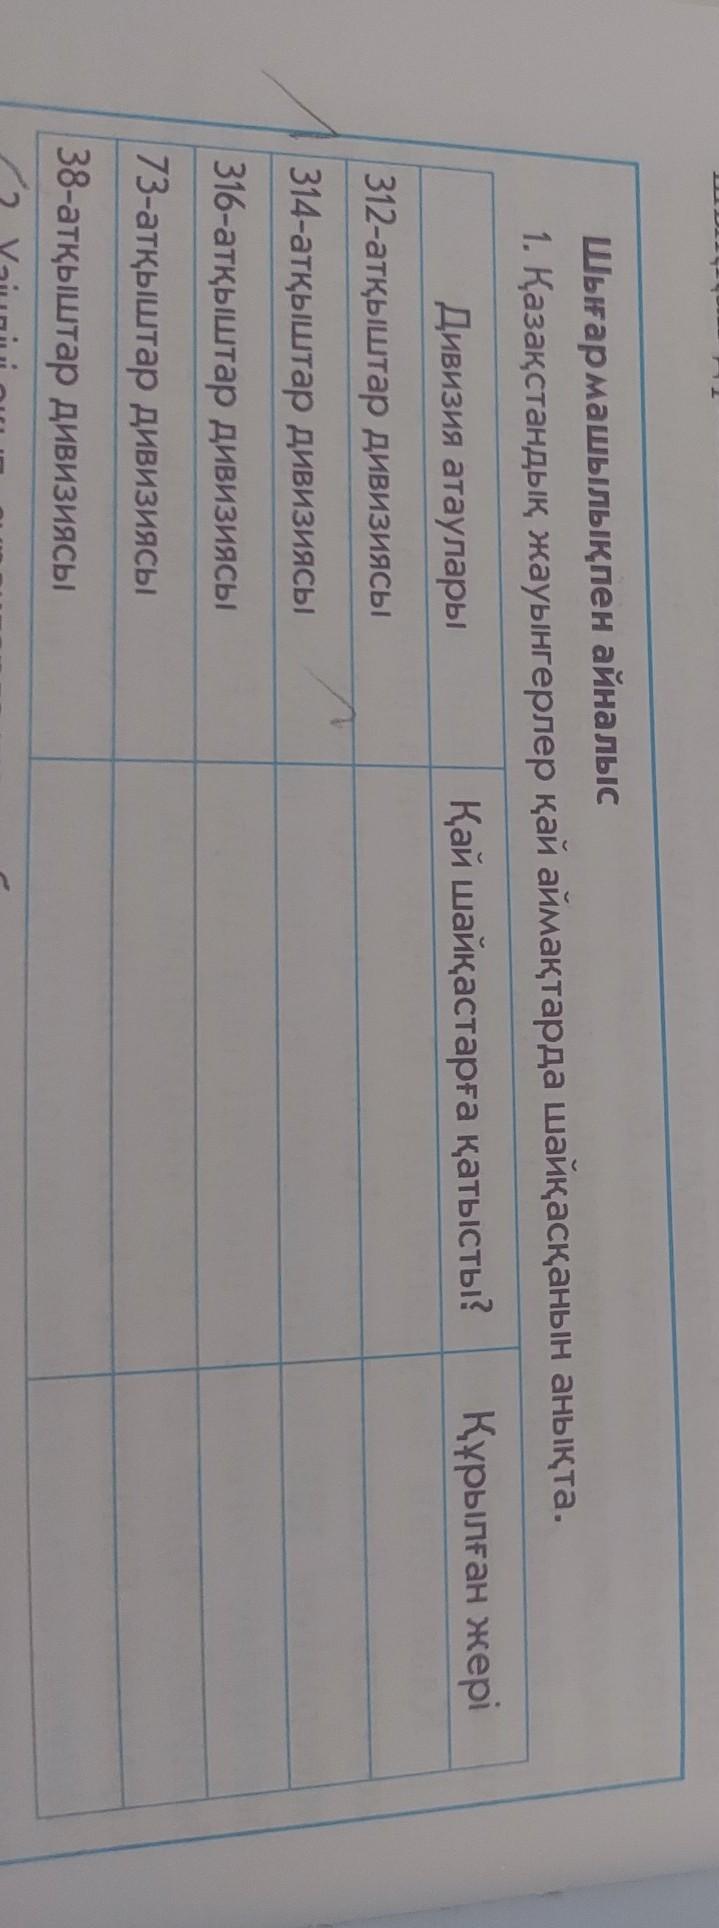 Шығармашылықпен айналыс
1. Қазақстандық жауынгерлер қай аймақтарда шайқасқанын анықта.
Дивизия атаулары Қай шайқастарға қатысты? Құрылған жері
312-атқыштар дивизиясы
314-атқыштар дивизиясы
316-атқыштар дивизиясы
73-атқыштар дивизиясы
38-атқыштар дивизиясы